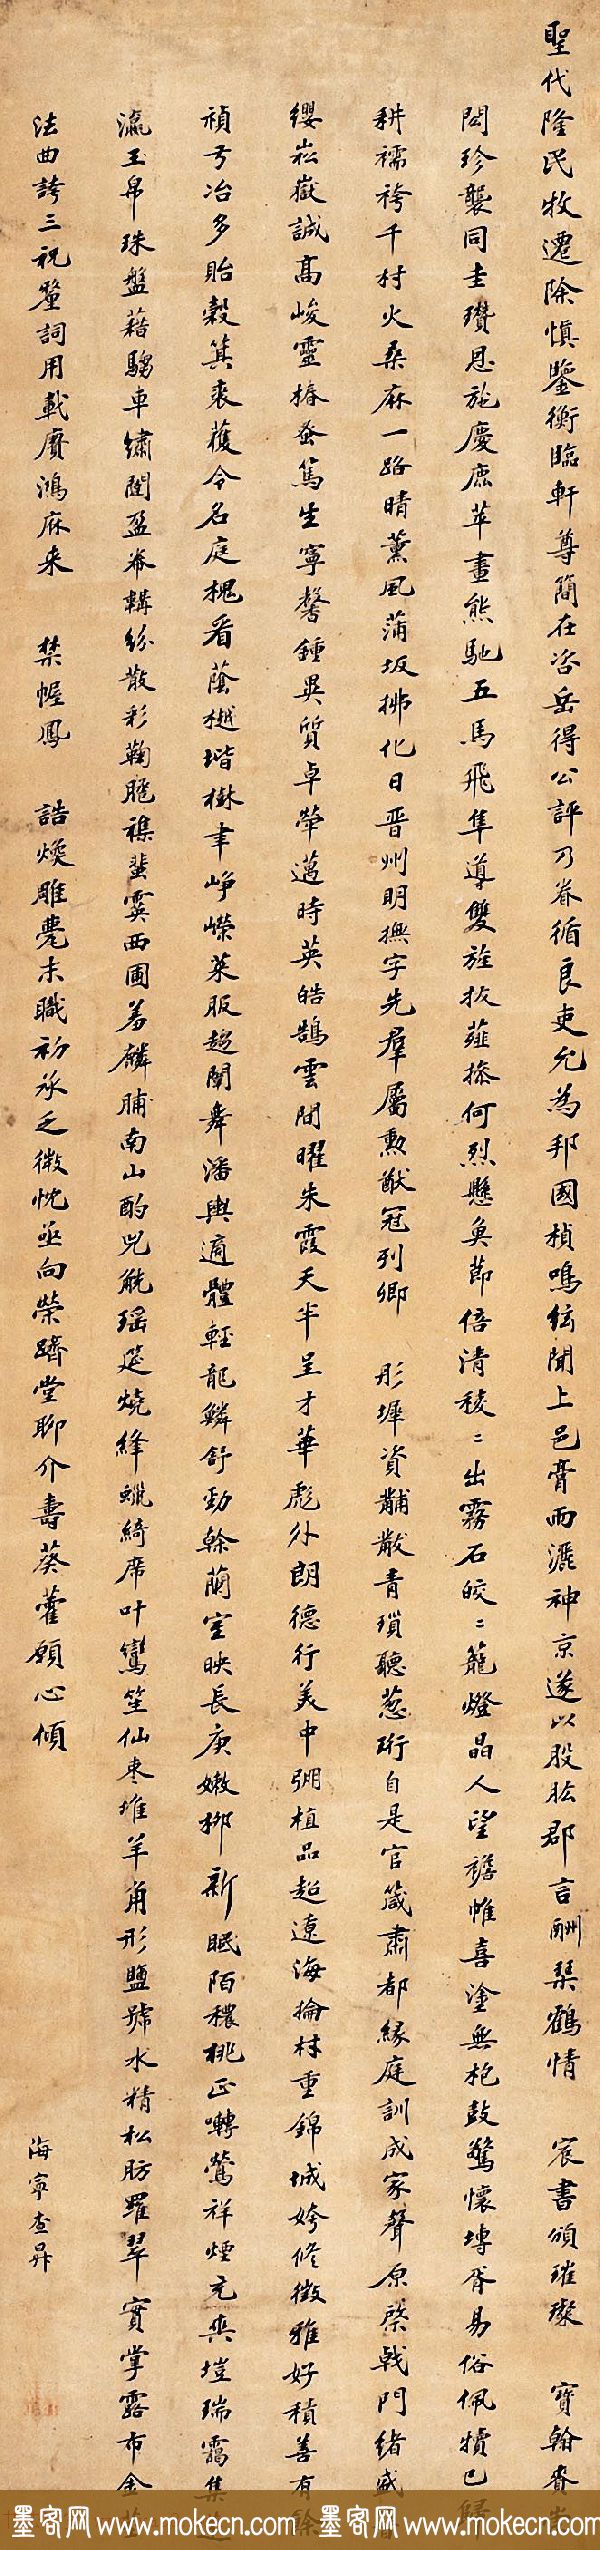 聖代隆民牧遷除慎鑒衡臨軒尊簡在咨岳得公評乃眷循良吏允為邦國楨鳴絃聞上邑膏雨灑神京遂以股肱郡言酬琴鶴情 宸書頒璀璨 寶翰賁
閎珍襲同圭瓚恩施慶鹿苹畫熊馳五馬飛隼導雙旌拔薤操何烈懸魚節倍清稜二出霧石皎二籠燈晶人望襜帷喜塗無枹鼓驚懷塼胥易俗佩犢已歸
耕襦袴千村火桑麻一路晴薰風蒲坂拂化日晋州明撫字先羣屬勳猷冠列卿 彤墀資黼黻青瑣聽蔥珩自是官箴肅都緣庭訓成家聲原棨戟門緒盛
纓崧嶽誠高峻靈椿益篤生寧馨鍾異質卓犖邁時英皓鵠雲間曜朱霞天半呈才華彪外朗德行美中弸植品超遼海掄材重錦城姱修徵雅好積善有餘
禎弓冶多貽穀箕裘蔭令名庭槐看蔭樾堦樹聿崢嶸萊服趨闈舞潘輿適體輕龍鱗舒勁榦蘭室映長庚嫩柳新眠陌穠桃正囀鶯祥煙充爽塏瑞靄集
瀛玉帛珠盤藉騶車繡闥盈卷韝紛散彩鞠䠆襍蜚霙西圃羞麟脯南山酌兕觥瑤筵燒絳蠟綺席叶鸞笙仙棗堆羊角形鹽號水精松肪羅翠實掌露布金莖
法曲誇三祝釐詞用載賡鴻庥来 禁幄鳳 誥煥雕甍末職初承乏微忱亟向榮躋堂聊介壽葵藿願心傾
海寧查昇
墨客网 www.mokecn.com 墨客网 www.mokecn.com